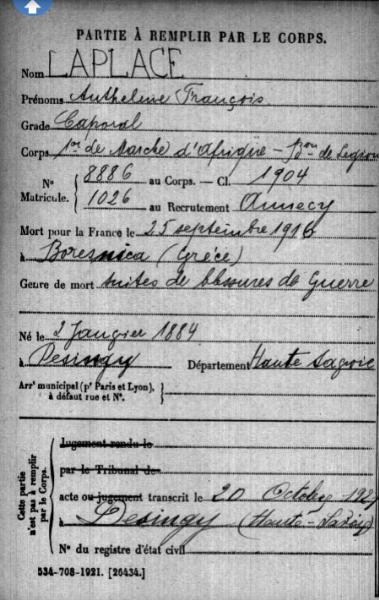 PARTIE À REMPLIR PAR LE CORPS.
Nom LAPLACE
Prénoms Anthelme François
Grade Caporal
Corps 1er de Marche d'Afrique - Bon de Legion
No 8886 au Corps. — Cl. 1904
Matricule. 1026 au Recrutement Annecy
Mort pour la France le 25 septembre 1916
à Boresnica (Grèce)
Genre de mort suites de blessures de Guerre
Né le 2 Janvier 1884
à Desingy Département Haute Savoie
Arrt municipal (pr Paris et Lyon),
à défaut rue et No.
Cette partie
n'est pas à remplir
par le Corps.
Jugement rendu le
par le Tribunal de
acte ou jugement transcrit le 20 Octobre 192
à Desingy (Haute-Savoie)
No du registre d'état civil
534-708-1921. [26434.]